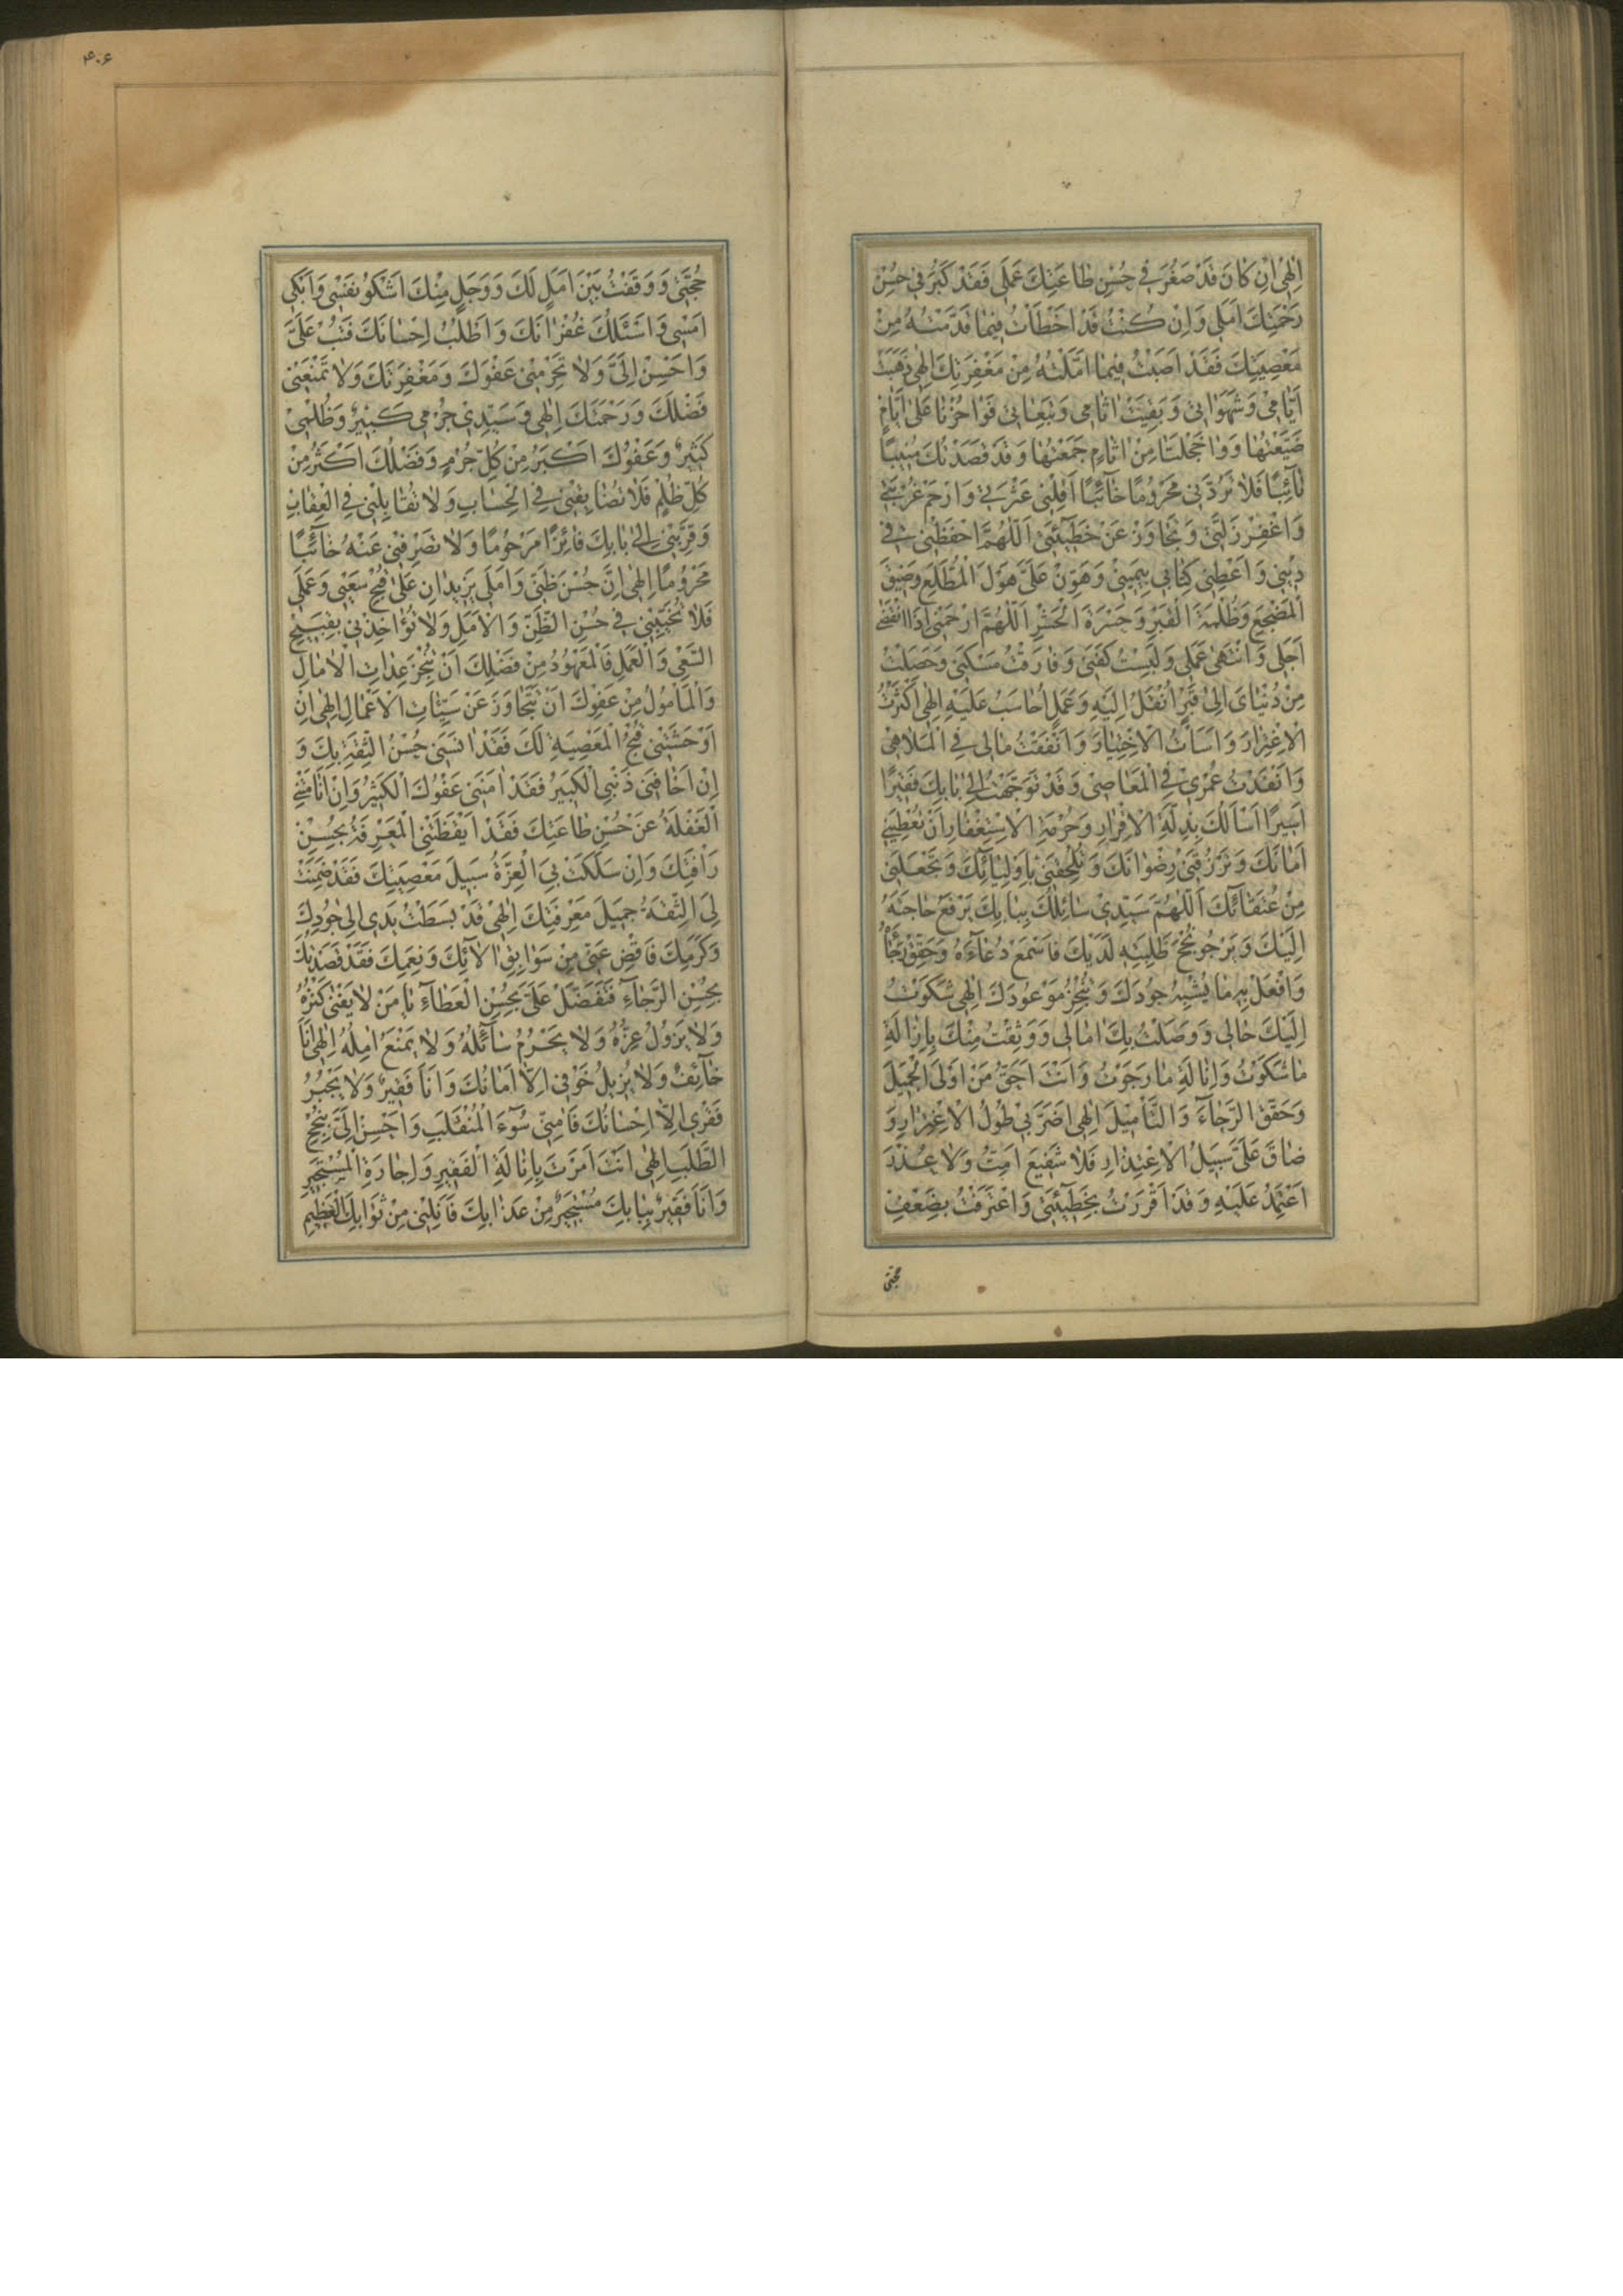 اِلٰهي اِنْ كانَ قَدْ صَغُرَ في حُسْنِ طاعَتِكَ عَمَلي فَقَدْ كَبُرَ في حُسْنِ
رَحْمَتِكَ اَمَلي وَاِنْ كُنْتُ قَدْ اَخْطَأْتُ فيما قَدَّمْتُهُ مِنْ
مَعْصِيَتِكَ فَقَدْ اَصَبْتُ فيما اَمَّلْتُهُ مِنْ مَغْفِرَتِكَ اِلٰهي ذَهَبَتْ
اَيّامي وَشَهَواتي وَبَقِيَتْ اٰثامي وَتَبِعاتي فَوا حُزْنا عَلى اَيّامٍ
ضَيَّعْتُها وَوا خَجْلَتا مِنْ اٰثامٍ جَمَعْتُها وَقَدْ قَصَدْتُكَ مُنيبًا
تائِبًا فَلا تَرُدَّني مَحْرُومًا خائِبًا اَقِلْني عَثْرَتي وَارْحَمْ غُرْبَتي
وَاغْفِرْ زَلَّتي وَتَجاوَزْ عَنْ خَطيئَتي اَللّٰهُمَّ احْفَظْني في
ديني وَاَعْطِني كِتابي بِيَميني وَهَوِّنْ عَلَيَّ هَوْلَ الْمُطَّلَعِ وَضيقَ
الْمَضْجَعِ وَظُلْمَةَ الْقَبْرِ وَحَسْرَةَ الْحَشْرِ اَللّٰهُمَّ ارْحَمْني اِذَا انْقَضى
اَجَلي وَانْتَهى عَمَلي وَلَبِسْتُ كَفَني وَفارَقْتُ سَكَني وَحَصَلْتُ
مِنْ دُنْيايَ اِلى قَبْرٍ اُنْقَلُ اِلَيْهِ وَعَمَلٍ اُحاسَبُ عَلَيْهِ اِلٰهي اَكْثَرْتُ
الْاِغْتِرارَ وَاَسَأْتُ الْاِخْتِيارَ وَاَنْفَقْتُ مالي فِي الْمَلاهي
وَاَنْفَدْتُ عُمْري فِي الْمَعاصي وَقَدْ تَوَجَّهْتُ اِلى بابِكَ فَقيرًا
اَسيرًا اَسْأَلُكَ بِذِلَّةِ الْاِقْرارِ وَحُرْمَةِ الْاِسْتِغْفارِ اَنْ تُعْطِيَني
اَمانَكَ وَتَرْزُقَني رِضْوانَكَ وَتُلْحِقَني بِاَوْلِيائِكَ وَتَجْعَلَني
مِنْ عُتَقائِكَ اَللّٰهُمَّ سَيِّدي سائِلُكَ بِبابِكَ يَرْفَعُ حاجَتَهُ
اِلَيْكَ وَيَرْجُو نُجْحَ طَلِبَتِهِ لَدَيْكَ فَاسْمَعْ دُعاءَهُ وَحَقِّقْ رَجاءَهُ
وَافْعَلْ بِهِ ما يُشْبِهُ جُودَكَ وَيُنْجِزُ مَوْعُودَكَ اِلٰهي شَكَوْتُ
اِلَيْكَ حالي وَوَصَلْتُ بِكَ اٰمالي وَوَثِقْتُ مِنْكَ بِاِزالَةِ
ما شَكَوْتُ وَاِنالَةِ ما رَجَوْتُ وَاَنْتَ اَحَقُّ مَنْ اَوْلَى الْجَميلَ
وَحَقَّقَ الرَّجاءَ وَالتَّأْميلَ اِلٰهي اَضَرَّ بي طُولُ الْاِغْتِرارِ وَ
ضاقَ عَلَيَّ سَبيلُ الْاِعْتِذارِ فَلا شَفيعَ اَمُتُّ وَلا عُذْرَ
اَعْتَمِدُ عَلَيْهِ وَقَدْ اَقْرَرْتُ بِخَطيئَتي وَاعْتَرَفْتُ بِضَعْفِ
حجتی
۴۰۶
حُجَّتي وَوَقَفْتُ بَيْنَ اَمَلٍ لَكَ وَوَجَلٍ مِنْكَ اَشْكُو نَفْسي وَاَبْكي
اَمْسي وَاَسْئَلُكَ غُفْرانَكَ وَاَطْلُبُ اِحْسانَكَ فَتُبْ عَلَيَّ
وَاَحْسِنْ اِلَيَّ وَلا تَحْرِمْني عَفْوَكَ وَمَغْفِرَتَكَ وَلا تَمْنَعْني
فَضْلَكَ وَرَحْمَتَكَ اِلٰهي وَسَيِّدي جُرْمي كَبيرٌ وَظُلْمي
كَثيرٌ وَعَفْوُكَ اَكْبَرُ مِنْ كُلِّ جُرْمٍ وَفَضْلُكَ اَكْثَرُ مِنْ
كُلِّ ظُلْمٍ فَلا تُضايِقْني فِي الْحِسابِ وَلا تُقابِلْني فِي الْعِقابِ
وَقَرِّبْني اِلى بابِكَ فائِزًا مَرْحُومًا وَلا تَصْرِفْني عَنْهُ خائِبًا
مَحْرُومًا اِلٰهي اِنَّ حُسْنَ ظَنّي وَاَمَلي يَزيدانِ عَلى قُبْحِ سَعْيي وَعَمَلي
فَلا تُخَيِّبْني في حُسْنِ الظَّنِّ وَالْاَمَلِ وَلا تُؤاخِذْني بِقَبيحِ
السَّعْيِ وَالْعَمَلِ فَالْمَعْهُودُ مِنْ فَضْلِكَ اَنْ تُنْجِزَ عِداتِ الْاٰمالِ
وَالْمَأْمُولُ مِنْ عَفْوِكَ اَنْ تَتَجاوَزَ عَنْ سَيِّئاتِ الْاَعْمالِ اِلٰهي اِنْ
اَوْحَشَتْني قُبْحُ الْمَعْصِيَةِ لَكَ فَقَدْ اٰنَسَني حُسْنُ الثِّقَةِ بِكَ وَ
اِنْ اَخافَني ذَنْبِيَ الْكَبيرُ فَقَدْ اٰمَنَني عَفْوُكَ الْكَثيرُ وَاِنْ اَنامَتْني
الْغَفْلَةُ عَنْ حُسْنِ طاعَتِكَ فَقَدْ اَيْقَظَتْنِي الْمَعْرِفَةُ بِحُسْنِ
رَأْفَتِكَ وَاِنْ سَلَكَتْ بِيَ الْعِزَّةُ سَبيلَ مَعْصِيَتِكَ فَقَدْ ضَمِنَتْ
لِيَ الثِّقَةُ جَميلَ مَعْرِفَتِكَ اِلٰهي قَدْ بَسَطْتُ يَدي اِلى جُودِكَ
وَكَرَمِكَ فَاقْضِ عَنّي مِنْ سَوابِقِ اٰلائِكَ وَنِعَمِكَ فَقَدْ قَصَدْتُكَ
بِحُسْنِ الرَّجاءِ فَتَفَضَّلْ عَلَيَّ بِحُسْنِ الْعَطاءِ يا مَنْ لا يَفْنى كَنْزُهُ
وَلا يَزُولُ عِزُّهُ وَلا يَحْرُمُ سائِلُهُ وَلا يَمْنَعُ اٰمِلُهُ اِلٰهي اَنَا
خائِفٌ وَلا يُزيلُ خَوْفي اِلّا اَمانُكَ وَاَنَا فَقيرٌ وَلا يَجْبُرُ
فَقْري اِلّا اِحْسانُكَ فَاٰمِنّي سُوءَ الْمُنْقَلَبِ وَاَحْسِنْ اِلَيَّ بِنُجْحِ
الطَّلَبِ اِلٰهي اَنْتَ اَمَرْتَ بِاِنالَةِ الْفَقيرِ وَاِجارَةِ الْمُسْتَجيرِ
وَاَنَا فَقيرٌ بِبابِكَ مُسْتَجيرٌ مِنْ عَذابِكَ فَاَنِلْني مِنْ ثَوابِكَ الْعَظيمِ